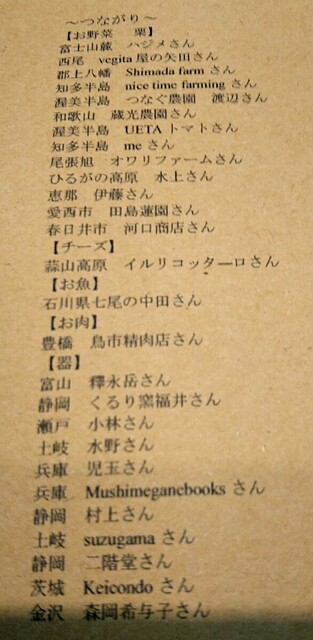 ～つながり～
【お野菜　栗】
富士山麓　ハジメさん
西尾　vegita屋の矢田さん
郡上八幡　Shimada farmさん
知多半島　nice time farmingさん
渥美半島　つなぐ農園　渡辺さん
和歌山　蔵光農園さん
渥美半島　UETAトマトさん
知多半島　meさん
尾張旭　オワリファームさん
ひるがの高原　水上さん
恵那　伊藤さん
愛西市　田島蓮園さん
春日井市　河口商店さん
【チーズ】
蒜山高原　イルリコッターロさん
【お魚】
石川県七尾の中田さん
【お肉】
豊橋　鳥市精肉店さん
【器】
富山　釋永岳さん
静岡　くるり窯福井さん
瀬戸　小林さん
土岐　水野さん
兵庫　児玉さん
兵庫　Mushimeganebooksさん
静岡　村上さん
土岐　suzugamaさん
静岡　二階堂さん
茨城　Keicondoさん
金沢　森岡希与子さん